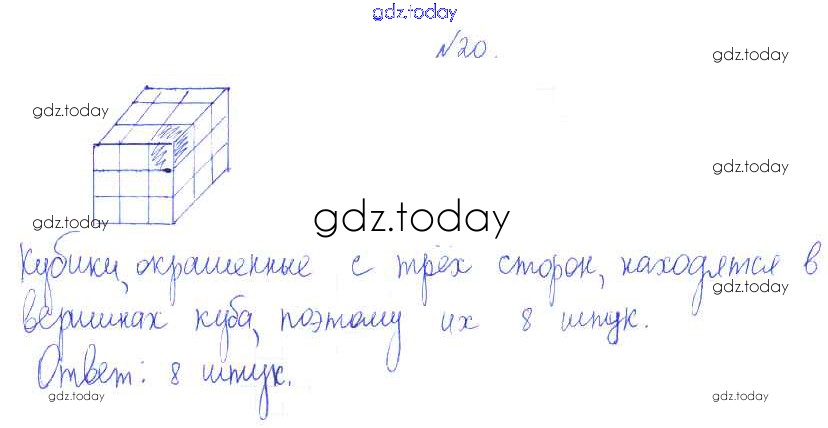 gdz.today
№20.
gdz.today
gdz.today
gdz.today
gdz.today
gdz.today
Кубики, окрашенные с трёх сторон, находятся в
gdz.today
вершинах куба, поэтому их 8 штук.
Ответ: 8 штук.
gdz.today
gdz.today